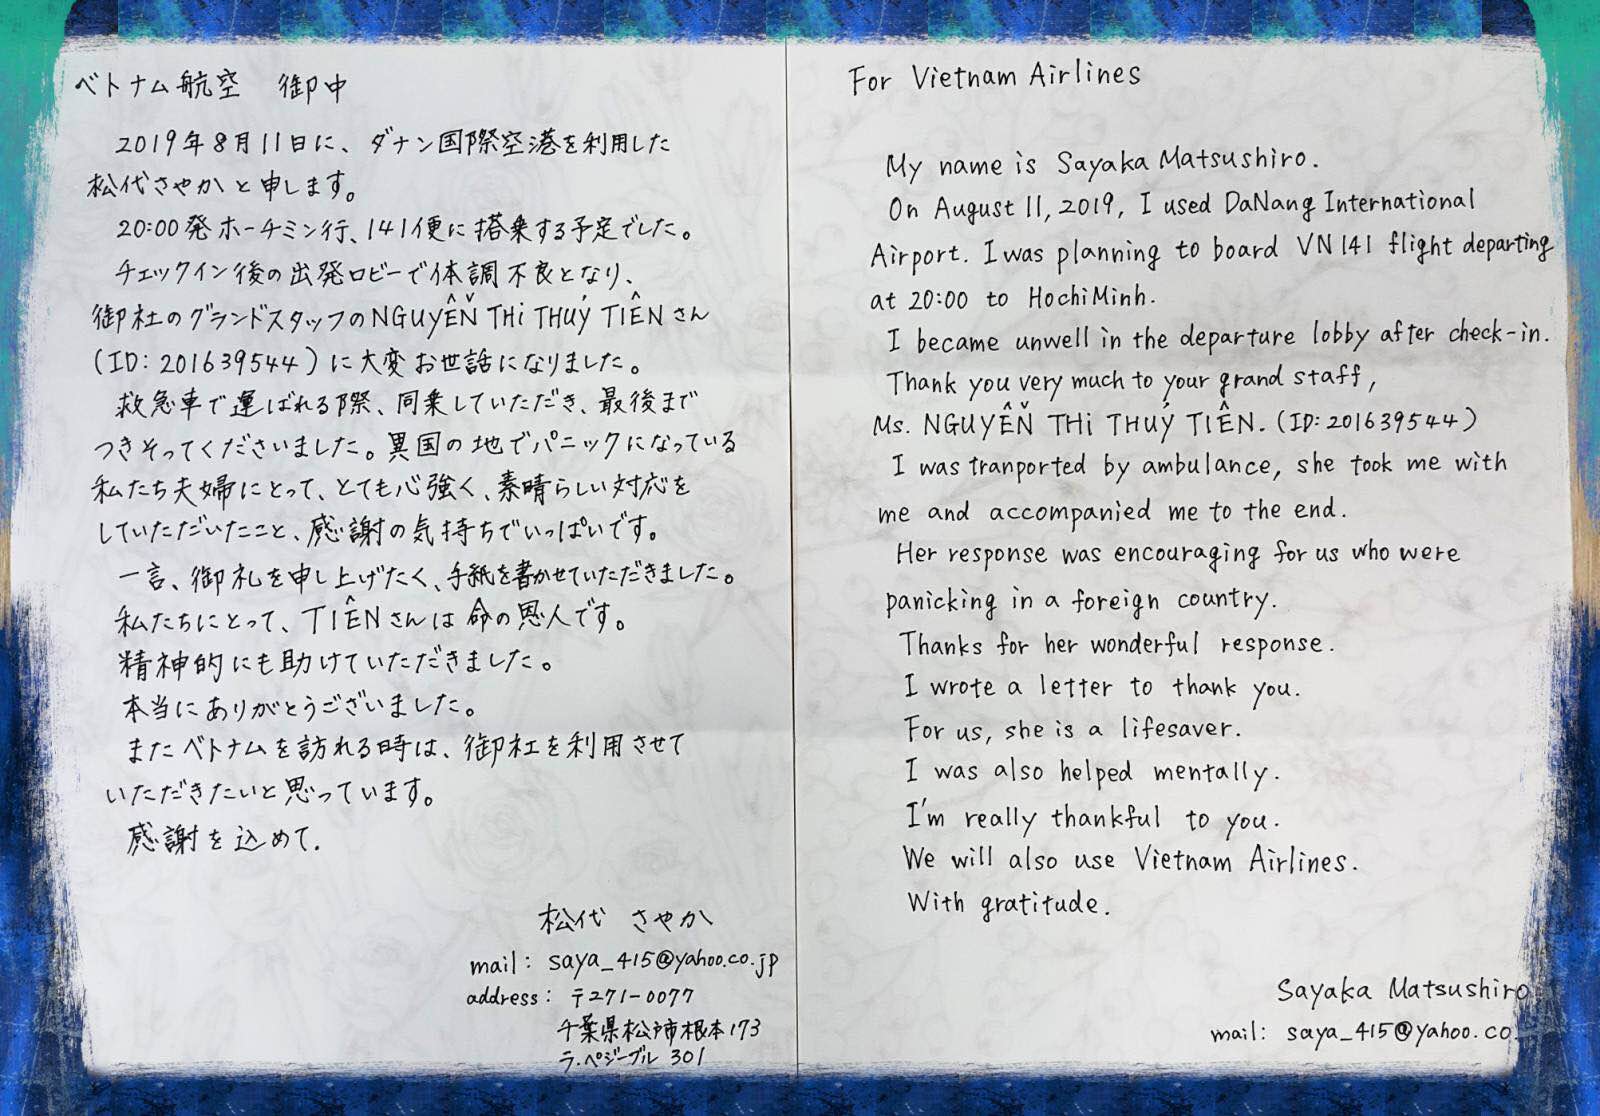 ベトナム航空 御中
2019年8月11日に、ダナン国際空港を利用した
松代さやかと申します。
20:00発ホーチミン行、141便に搭乗する予定でした。
チェックイン後の出発ロビーで体調不良となり、
御社のグランドスタッフのNGUYỄN THỊ THUÝ TIÊNさん
(ID: 201639544)に大変お世話になりました。
救急車で運ばれる際、同乗していただき、最後まで
つきそってくださいました。異国の地でパニックになっている
私たち夫婦にとって、とても心強く、素晴らしい対応を
していただいたこと、感謝の気持ちでいっぱいです。
一言、御礼を申し上げたく、手紙を書かせていただきました。
私たちにとって、TIÊNさんは命の恩人です。
精神的にも助けていただきました。
本当にありがとうございました。
またベトナムを訪れる時は、御社を利用させて
いただきたいと思っています。
感謝を込めて.
松代 さやか
mail: saya_415@yahoo.co.jp
address: 〒271-0077
千葉県松戸市根本173
ラ・ペジーブル 301
For Vietnam Airlines
My name is Sayaka Matsushiro.
On August 11, 2019, I used DaNang International
Airport. I was planning to board VN141 flight departing
at 20:00 to HochiMinh.
I became unwell in the departure lobby after check-in.
Thank you very much to your grand staff,
Ms. NGUYỄN THỊ THUÝ TIÊN. (ID: 201639544)
I was tranported by ambulance, she took me with
me and accompanied me to the end.
Her response was encouraging for us who were
panicking in a foreign country.
Thanks for her wonderful response.
I wrote a letter to thank you.
For us, she is a lifesaver.
I was also helped mentally.
I'm really thankful to you.
We will also use Vietnam Airlines.
With gratitude.
Sayaka Matsushiro
mail: saya_415@yahoo.co.